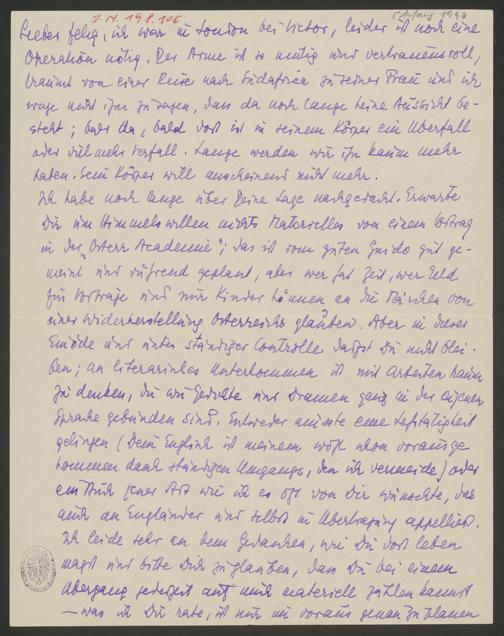 I.N. 198.106
(Anfang 1940
Lieber Felix, ich war in London bei Victor, leider ist noch eine
Operation nötig. Der Arme ist so mutig und vertrauensvoll,
träumt von einer Reise nach Südafrica zu seiner Frau und ich
wage nicht ihm zu sagen, dass da noch lange keine Aussicht be-
steht; bald da, bald dort ist in seinem Körper ein Überfall
oder vielmehr Verfall. Lange werden wir ihn kaum mehr
haben. Sein Körper will anscheinend nicht mehr.
Ich habe noch lange über Deine Lage nachgedacht. Erwarte
Dir um Himmelswillen nichts Materielles von einem Vortrag
in der „Österr Academie"; das ist vom guten Guido gut ge-
meint und rührend geplant, aber wer hat Zeit, wer Geld
für Vorträge und nur Kinder können an die Märchen von
einer Wiederherstellung Österreichs glauben. Aber in dieser
Einöde und unter ständiger Controlle darfst Du nicht blei-
ben; an literarisches Unterkommen ist mit Arbeiten kaum
zu denken, die wie Gedichte und Dramen ganz in der eigenen
Sprache gebunden sind. Entweder müsste eine Lehrtätigkeit
gelingen (Dein Englisch ist meinem wohl schon vorausge
kommen dank ständigen Umgangs, den ich vermeide) oder
ein Buch jener Art wie ich es oft von Dir wünschte, das
auch an Engländer und selbst in Übertragung appelliert.
Ich leide sehr an dem Gedanken, wie Du dort leben
magst und bitte Dich zu glauben, dass Du bei einem
Übergang jederzeit auf mich materiell zählen kannst
— was ich Dir rate, ist nur im voraus genau zu planen